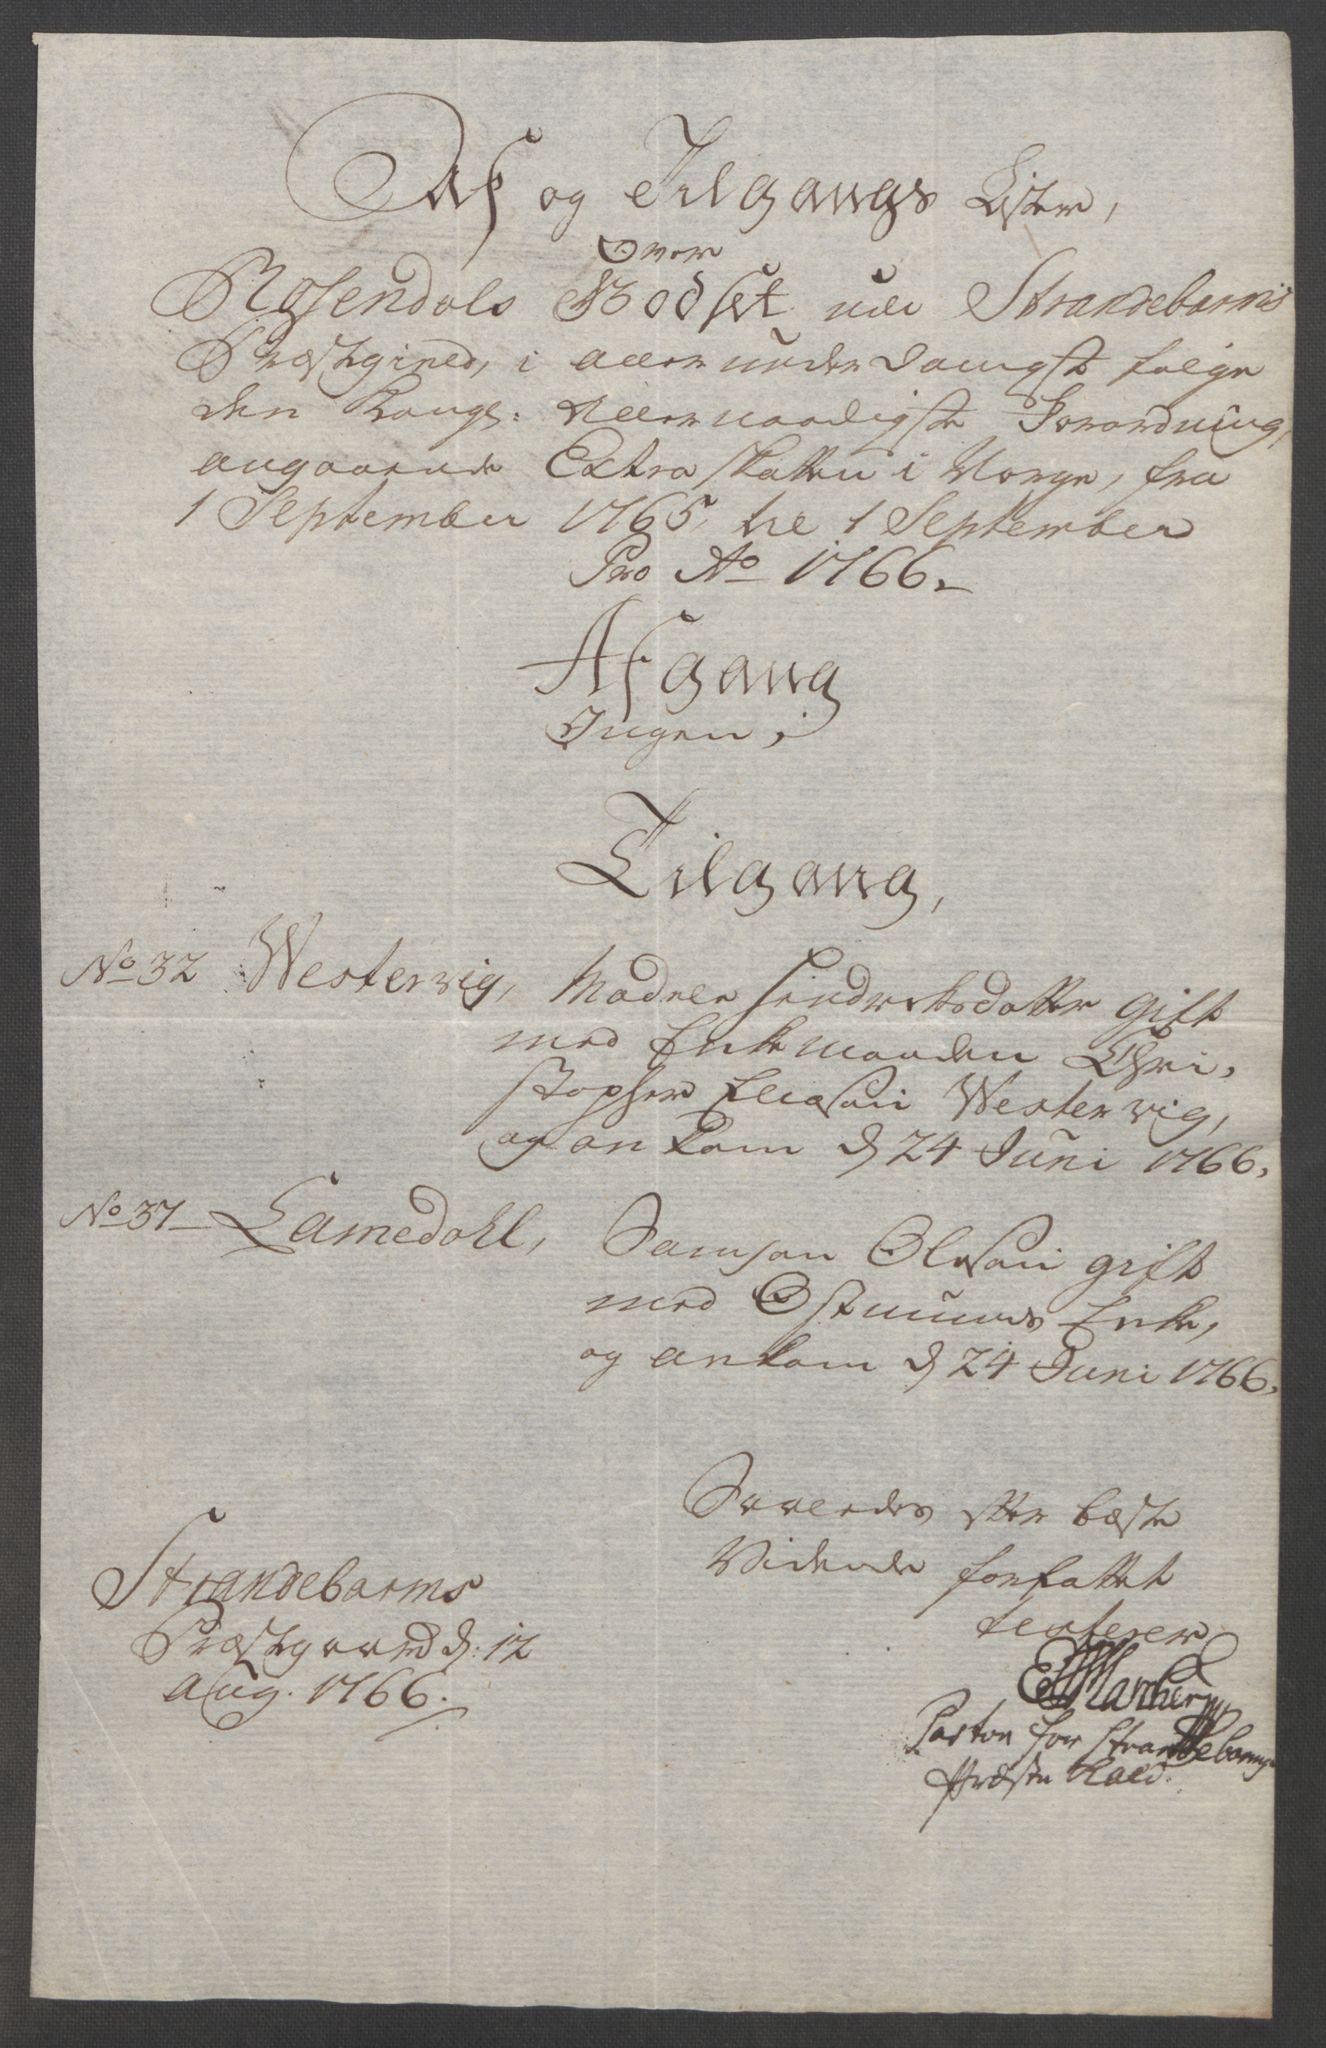 Af og Tilgangs Liste,
Over
Rosendals Godset udi Strandebarms
Præstegield, i allerunderdanigst følge
den Kongl: Allernaadigste Forordning,
angaaende Extra Skatten i Norge, fra
1 September 1765, til 1 September
Pro Ao 1766.
Afgang
Ingen,
Tilgang,
No 32 Westervig, Madele Hindrichsdatter gift
med Enkemanden Chri,
stopher Eliasøn Westervig,
og ankom d 24 Juni 1766,
No 37 Lamedahl, Samson Olesøn gift
med Ostmunds Enke,
og ankom d 24 Juni 1766,
Saaledes efter bæste
Vidende forfattet
testerer
Strandebarms
Præstegaard d: 12
Aug. 1766.
Pastor for Strandebarms
Præste Kald.